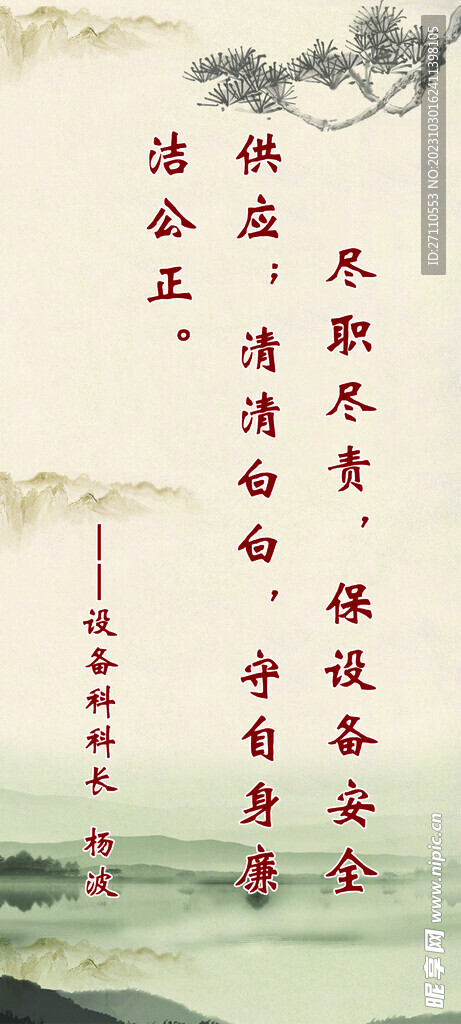 尽职尽责，保设备安全
供应；清清白白，守自身廉
洁公正。
——设备科科长 杨波
ID:27110553 NO:20231030162411398105
昵享网 www.nipic.cn